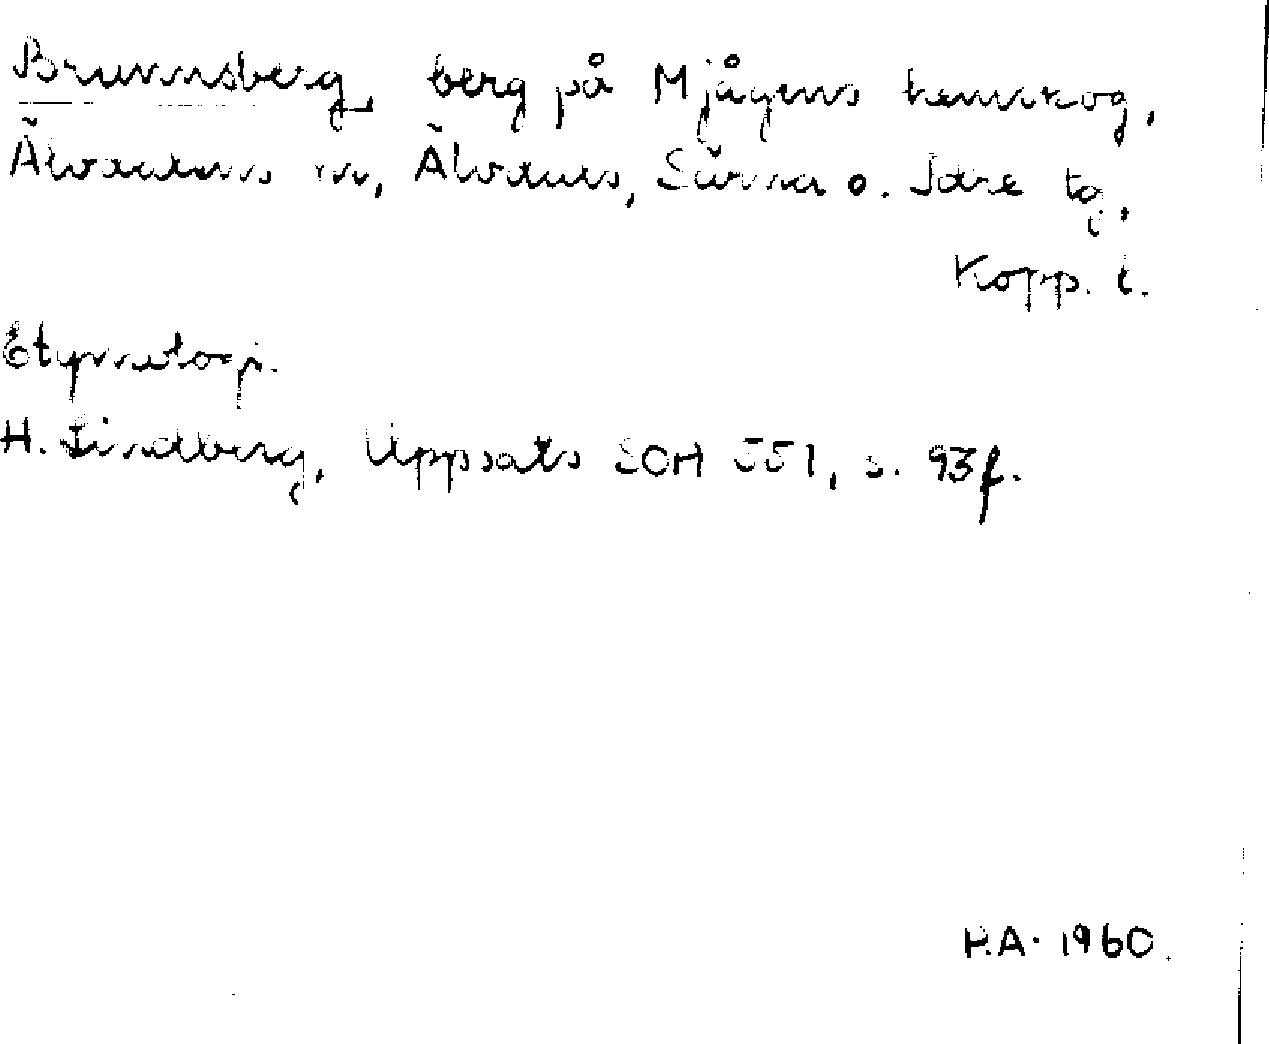 Brunnsberg, berg på Mjågens hemskog,
Älvdalens sn, Älvdals, Särna o. Idre tg,
Kopp. l.
Etymologi.
H. Lindberg, Uppsats SOH 551, s. 93f.
P.A. 1960.